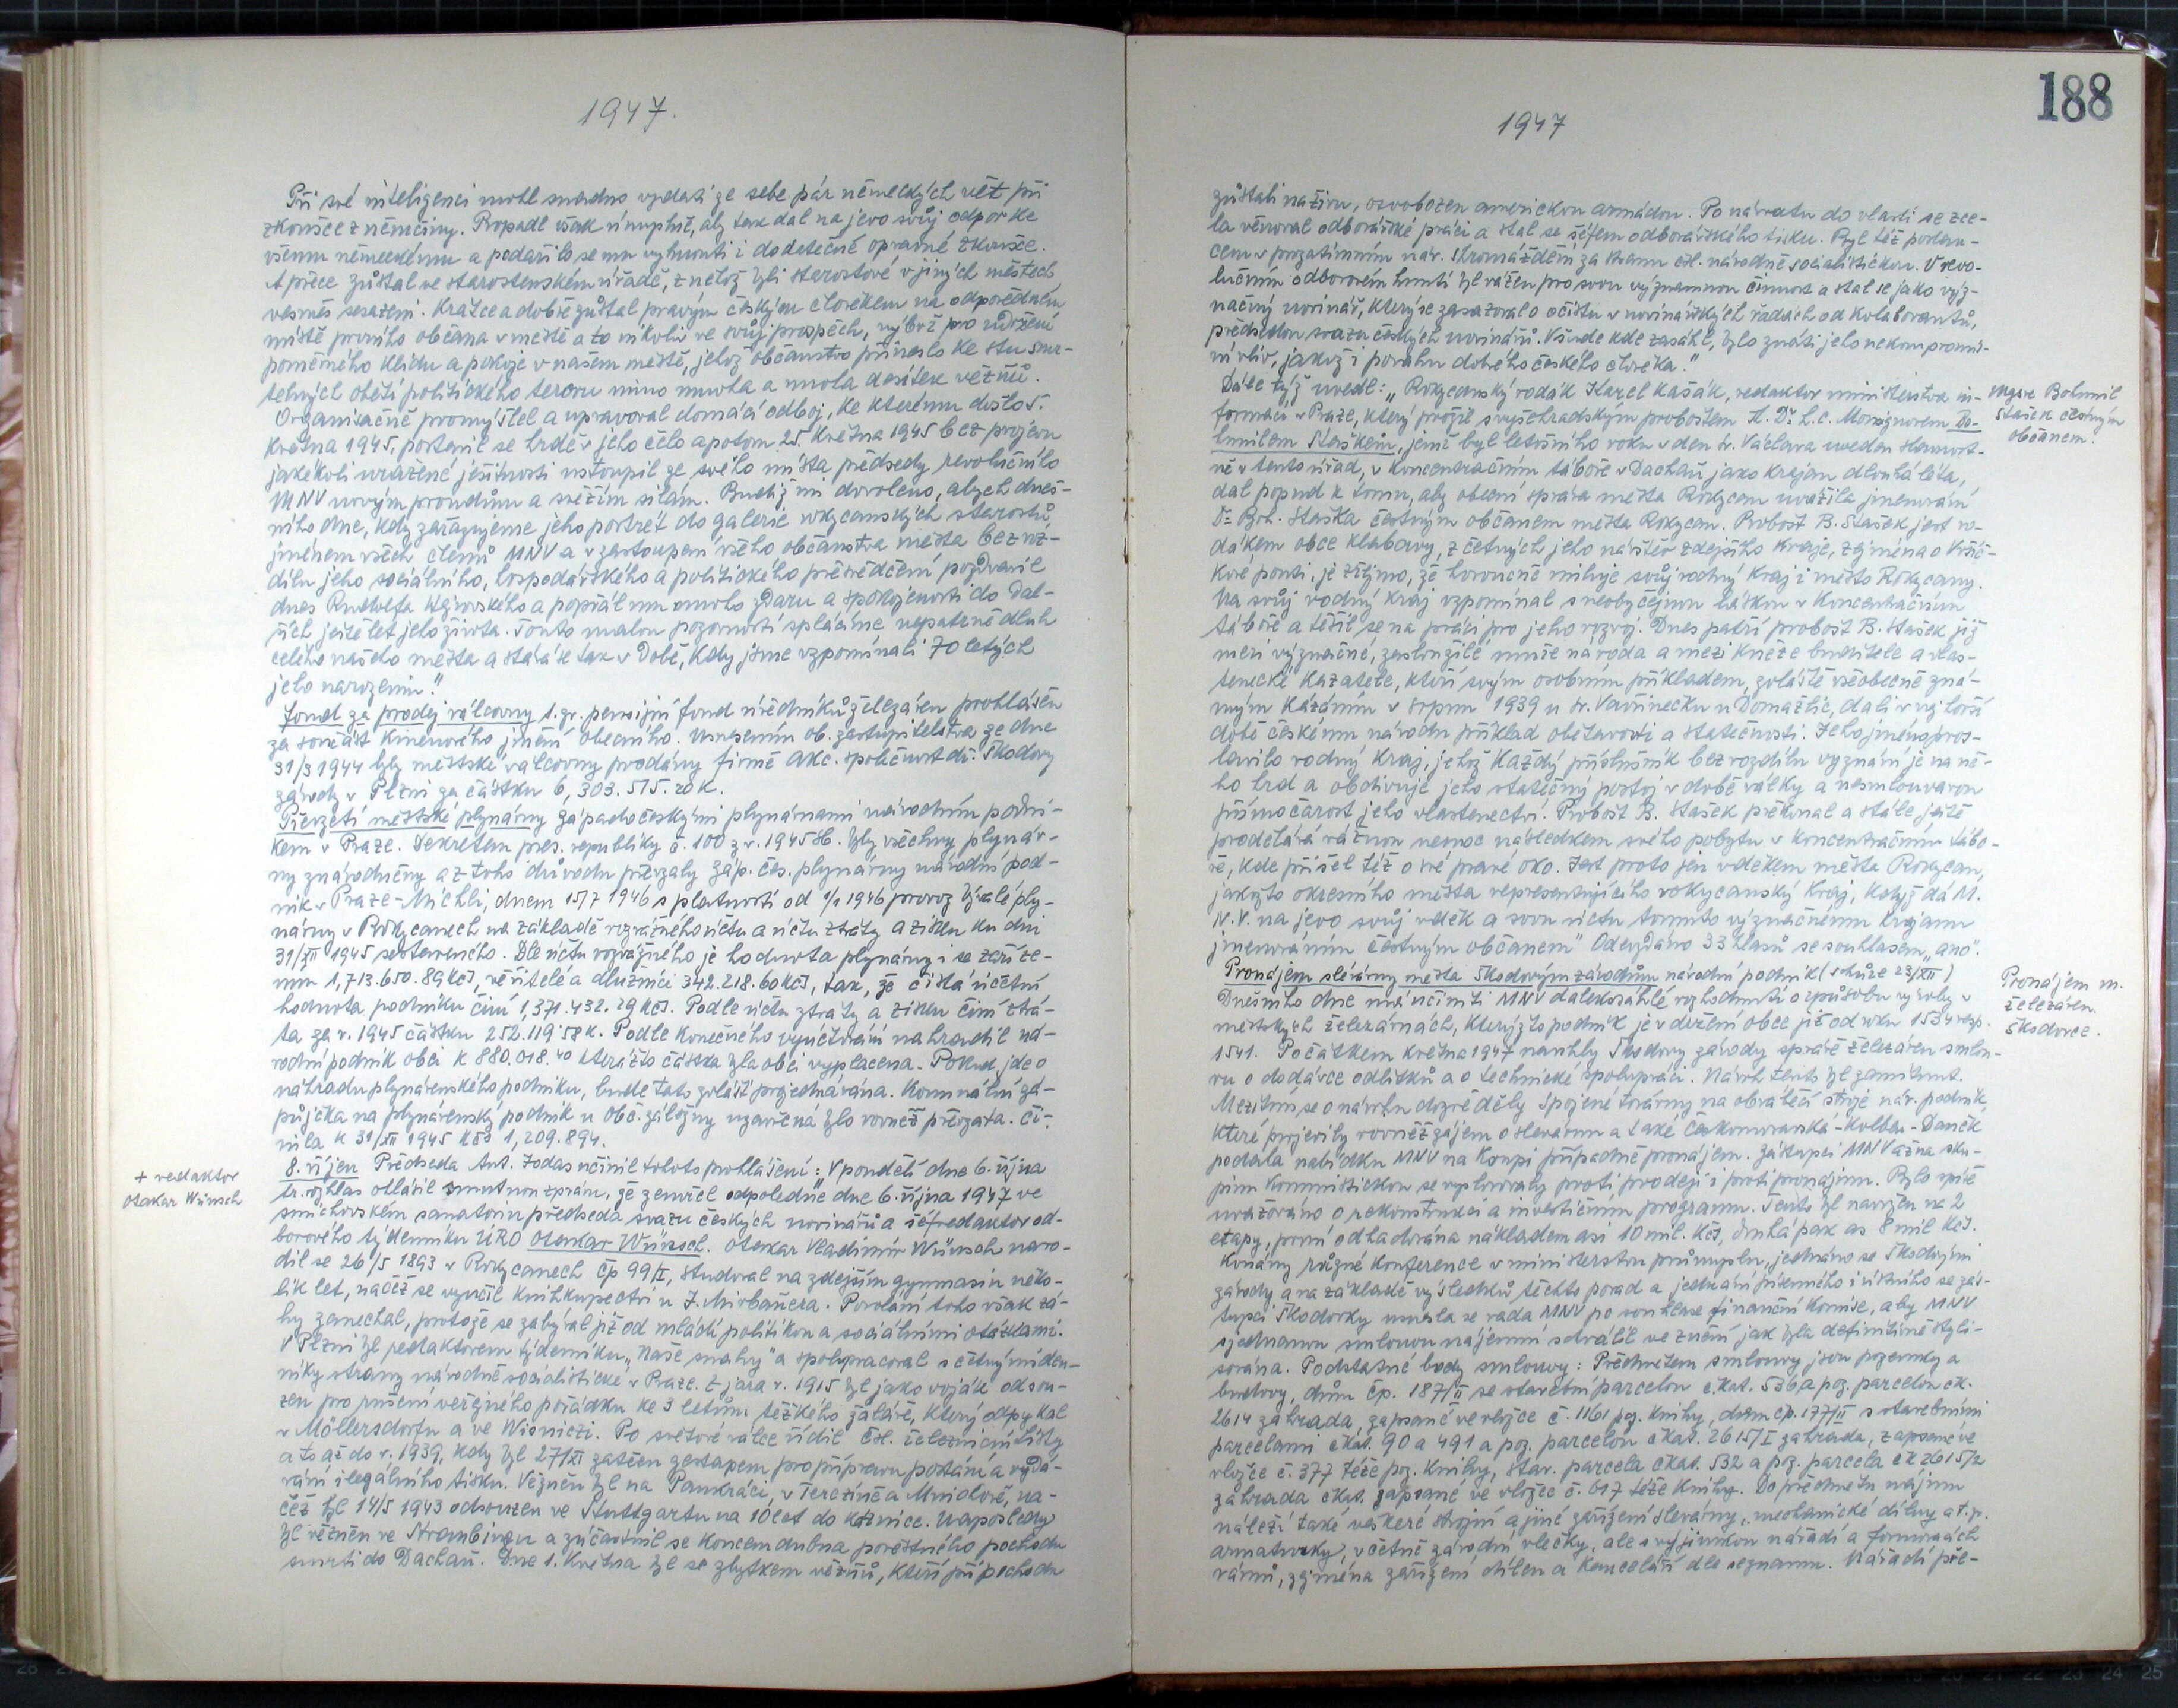 1947.
Při své inteligenci mohl snadno vydati ze sebe pár německých vět při
zkoušce z němčiny. Propadl však úmyslně, aby tak dal na jevo svůj odpor ke
všemu německému a podařilo se mu vyhnouti i dodatečné opravné zkoušce.
A přece zůstal ve starostenském úřadě, z něhož byli starostové v jiných městech
vesměs sesazeni. Krátce a dobře zůstal pravým českým člověkem na odpovědném
místě prvního občana v městě a to nikoliv ve svůj prospěch, nýbrž pro udržení
poměrného klidu a pokoje v našem městě, jehož občanstvo přineslo ke stu smr-
telných obětí politického teroru mimo mnoha a mnoha desítek vězňů.
Organisačně promýšlel a upravoval domácí odboj, ke kterému došlo 5.
května 1945, postavil se hrdě v jeho čelo a potom 25. května 1945 bez projevu
jakékoli uražené ješitnosti ustoupil ze svého místa předsedy revolučního
MNV novým proudům a svěžím silám. Budiž mi dovoleno, abych dneš-
ního dne, kdy zařazujeme jeho portrét do galerie rokycanských starostů,
jménem všech členů MNV a v zastoupení všeho občanstva města bez roz-
dílu jeho sociálního, hospodářského a politického přesvědčení pozdravil
dnes Rudolfa a popřál mu mnoho zdaru a spokojenosti do dal-
ších ještě let jeho života. Touto malou pozorností splácíme nepatrně dluh
celého našeho města a stává se tak v době, kdy jsme vzpomínali 70 letých
jeho narozenin."
Fond za prodej válcovny s. zv. pensijní fond úředníků železáren prohlášen
za součást kmenového jmění obecního. Usnesením ob. zastupitelstva ze dne
31/3 1944 byly městské válcovny prodány firmě akc. společnost dř. Škodovy
závody v Plzni za částku 6,303.515.20 K.
Převzetí městské plynárny západočeskými plynárnami národním podni-
kem v Praze. Dekretem pres. republiky č. 100 z r. 1945 Sb. byly všechny plynár-
ny znárodněny a z toho důvodu převzaly záp. čes. plynárny národní pod-
nik v Praze-Michli, dnem 15/7 1946 s platností od 1/1 1946 provoz bývalé ply-
nárny v Rokycanech na základě rozvážného účtu a účtu ztráty a zisku ku dni
31/XII 1945 sestaveného. Dle účtu rozvážného je hodnota plynárny i se zaříze-
ním 1,713.650.89 Kčs, věřitelé a dlužníci 342.218.60 Kčs, tak, že čistá účetní
hodnota podniku činí 1,371.432.29 Kčs. Podle účtu ztráty a zisku činí ztrá-
ta za r. 1945 částku 252.119.58 K. Podle konečného vyúčtování nahradil ná-
rodní podnik obci K 880.018.40 kterážto částka byla obci vyplacena. Pokud jde o
náhradu plynárenského podniku, bude tato zvlášť projednávána. Komunální zá-
půjčka na plynárenský podnik u Obč. záložny uzavřená byla rovněž převzata. Či-
nila k 31/XII 1945 Kčs 1,209.894.
+ redaktor
Otakar Wünsch
8. říjen Předseda Ant. Zodas učinil tohoto prohlášení: "V pondělí dne 6. října
čs. rozhlas ohlásil smutnou zprávu, že zemřel odpoledne dne 6. října 1947 ve
smíchovském sanatoriu předseda svazu českých novinářů a šéfredaktor od-
borového týdenníku ÚRO Otakar Wünsch. Otakar Vladimír Wünsch naro-
dil se 26/5 1893 v Rokycanech čp 99/I, studoval na zdejším gymnasiu něko-
lik let, načež se vyučil knihkupectví u J. Povolání toho však zá-
hy zanechal, protože se zabýval již od mládí politikou a sociálními otázkami.
V Plzni byl redaktorem týdenníku "Naše snahy" a spolupracoval s četnými den-
níky strany národně socialistické v Praze. Z jara r. 1915 byl jako voják odsou-
zen pro rušení veřejného pořádku ke 3 letům těžkého žaláře, který odpykal
v Möllersdorfu a ve Wisniczi. Po světové válce řídil Čsl. železniční listy
a to až do r. 1939, kdy byl 27/XI zatčen gestapem pro přípravu podání a vydá-
vání ilegálního tisku. Vězněn byl na Pankráci, v Terezíně a Mnichově, na-
čež byl 14/5 1943 odsouzen ve Stuttgartu na 10 let do káznice. Naposledy
byl vězněn ve Straubingu a zúčastnil se koncem dubna pověstného pochodu
smrti do Dachau. Dne 1. května byl se zbytkem vězňů, kteří při pochodu
188
1947
zůstali na živu, osvobozen americkou armádou. Po návratu do vlasti se zce-
la věnoval odborářské práci a stal se šéfem odborářského tisku. Byl též poslan-
cem v prozatímním nár. shromáždění za stranu čsl. národně socialistickou. V revo-
lučním odborovém hnutí byl vážen pro svou významnou činnost a stal se jako výz-
načný novinář, který se zasazoval o očistu v novinářských řadách od kolaborantů,
předsedou svazu českých novinářů. Všude kde zasáhl, bylo znáti jeho nekompromis-
ní vliv, jakož i povahu dobrého českého člověka."
Dále týž uvedl: "Rokycanský rodák Karel Kašák, redaktor ministerstva in-
formací v Praze, který prožil s vyšehradským proboštem H. Dr. h.c. Monsignorem Bo-
humilem Staškem, jenž byl letošního roku v den sv. Václava uveden slavnost-
ně v tento úřad, v koncentračním táboře v Dachau jako krajan dlouhá léta,
dal popud k tomu, aby obecní správa města Rokycan uvážila jmenování
Dr. Boh. Staška čestným občanem města Rokycan. Probošt B. Stašek jest ro-
dákem obce Klabavy, z četných jeho návštěv zdejšího kraje, zejména o Vršíč-
kové pouti, je zřejmo, že horoucně miluje svůj rodný kraj i město Rokycany.
Na svůj rodný kraj vzpomínal s neobyčejnou láskou v koncentračním
táboře a těšil se na práci pro jeho rozvoj. Dnes patří probošt B. Stašek již
mezi význačné, zasloužilé muže národa a mezi kněze buditele a vlas-
tenecké kazatele, kteří svým osobním příkladem, zvláště všeobecně zná-
mým kázáním v srpnu 1939 u sv. Vavřinečku u Domažlic, dali v nejhorší
době českému národu příklad obětavosti a statečnosti. Jeho jméno pros-
lavilo rodný kraj, jehož každý příslušník bez rozdílu vyznání je na ně-
ho hrd a obdivuje jeho statečný postoj v době války a nesmlouvavou
přímočarost jeho vlastenectví. Probošt B. Stašek překonal a stále ještě
prodělává vážnou nemoc následkem svého pobytu v koncentračním tábo-
ře, kde přišel též o své pravé oko. Jest proto jen vděkem města Rokycan,
jakožto okresního města representujícího rokycanský kraj, když dá M.
N.V. na jevo svůj vděk a svou úctu tomuto význačnému krajanu
jmenováním čestným občanem" Odevzdáno 33 hlasů se souhlasem "ano".
Msgre Bohumil
Stašek čestným
občanem.
Pronájem slévárny města Škodovým závodům národní podnik (schůze 23/XII)
Dnešního dne má učiniti MNV dalekosáhlé rozhodnutí o způsobu výroby v
městských železárnách, kterýžto podnik je v držení obce již od roku 1534 resp.
1541. Počátkem května 1947 navrhly Škodovy závody správě železáren smlou-
vu o dodávce odlitků a o technické spolupráci. Návrh tento byl zamítnut.
Mezitím se o návrhu dozvěděly Spojené továrny na obráběcí stroje nár. podnik,
které projevily rovněž zájem o slévárnu a také Českomoravská-Kolben-Daněk
podala nabídku MNV na koupi případně pronájem. Zástupci MNV až na sku-
pinu komunistickou se vyslovovaly proti prodeji i proti pronájmu. Bylo spíše
uvažováno o rekonstrukci a investičním programu. Tento byl navržen na 2
etapy, první odhadována nákladem asi 10 mil. Kčs, druhá pak as 8 mil Kčs.
Konány různé konference v ministerstvu průmyslu, jednáno se Škodovými
závody a na základě výsledků těchto porad a jednání písemného i ústního se zás-
tupci Škodovky usnesla se rada MNV po souhlase finanční komise, aby MNV
sjednanou smlouvu nájemní schválil ve znění jak byla definitivně styli-
sována. Podstatné body smlouvy: Předmětem smlouvy jsou pozemky a
budovy, dům čp. 187/II se stavební parcelou čkat. 536, a poz. parcelou čk.
2614 zahrada, zapsané ve vložce č. 1161 poz. knihy, dům čp. 177/II s stavebními
parcelami čkat. 490 a 491 a poz. parcelou čkat. 2615/I zahrada, zapsané ve
vložce č. 377 téže poz. knihy, stav. parcela čkat. 532 a poz. parcela čk 2615/2
zahrada čkat. zapsané ve vložce č. 617 téže knihy. Do předmětu nájmu
náleží také veškeré strojní a jiné zařízení slévárny, mechanické dílny a t.p.
armaturky, včetně závodní vlečky, ale s vyjímkou nářadí a formovacích
rámů, zejména zařízení dílen a kanceláří dle seznamu. Nářadí pře-
Pronájem m.
železáren
Škodovce.